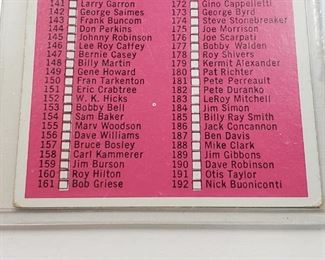 141 Larry Garron
142 George Saimes
143 Frank Buncom
144 Don Perkins
145 Johnny Robinson
146 Lee Roy Caffey
147 Bernie Casey
148 Billy Martin
149 Gene Howard
150 Fran Tarkenton
151 Eric Crabtree
152 W. K. Hicks
153 Bobby Bell
154 Sam Baker
155 Marv Woodson
156 Dave Williams
157 Bruce Bosley
158 Carl Kammerer
159 Jim Burson
160 Roy Hilton
161 Bob Griese
172 Gino Cappelletti
173 George Byrd
174 Steve Stonebreaker
175 Joe Morrison
176 Joe Scarpati
177 Bobby Walden
178 Roy Shivers
179 Kermit Alexander
180 Pat Richter
181 Pete Perreault
182 Pete Duranko
183 LeRoy Mitchell
184 Jim Simon
185 Billy Ray Smith
186 Jack Concannon
187 Ben Davis
188 Mike Clark
189 Jim Gibbons
190 Dave Robinson
191 Otis Taylor
192 Nick Buoniconti